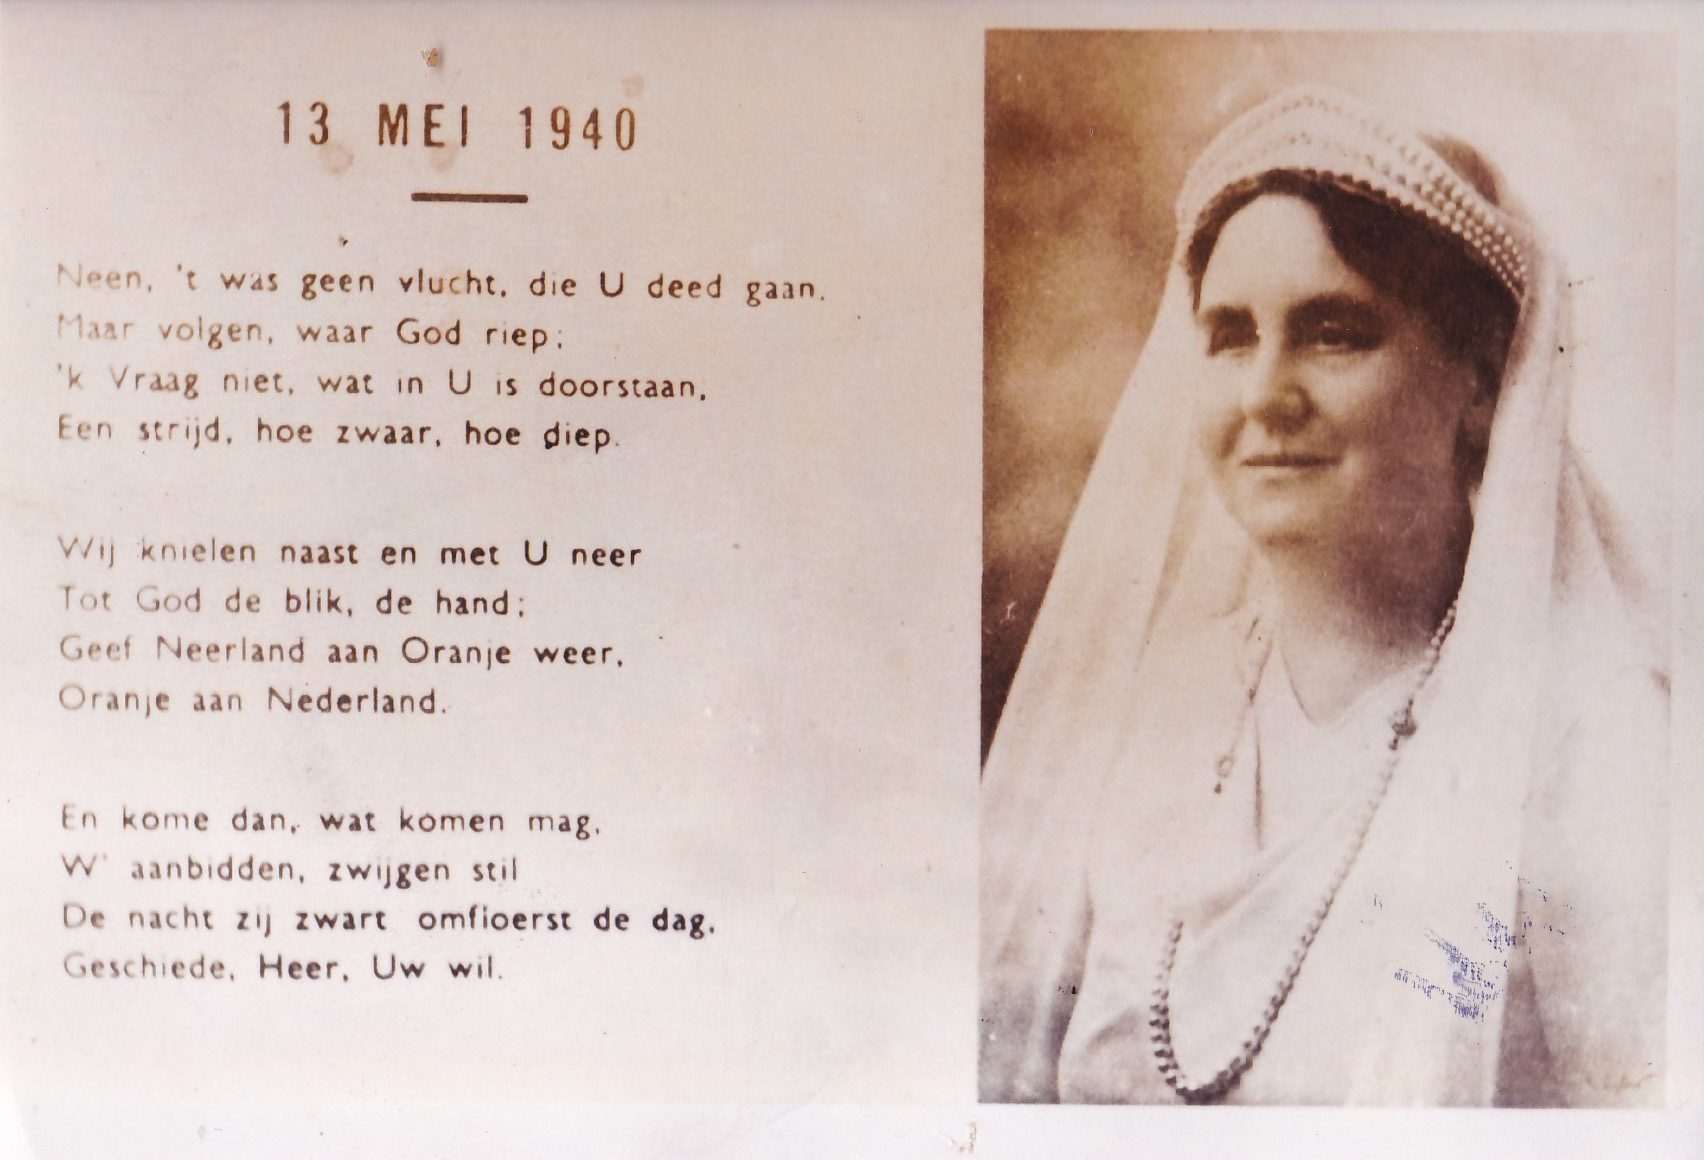 13 MEI 1940
Neen, 't was geen vlucht, die U deed gaan.
Maar volgen, waar God riep;
'k Vraag niet, wat in U is doorstaan,
Een strijd, hoe zwaar, hoe diep.
Wij knielen naast en met U neer
Tot God de blik, de hand;
Geef Neerland aan Oranje weer,
Oranje aan Nederland.
En kome dan, wat komen mag,
W' aanbidden, zwijgen stil
De nacht zij zwart omfloerst de dag,
Geschiede, Heer, Uw wil.